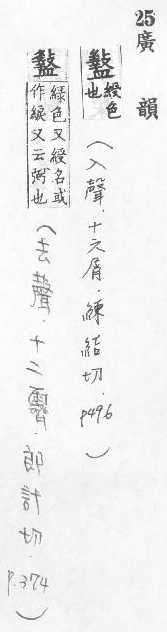 25廣韻
盭 綬色
也
(入聲.十六屑.練結切.p496)
盭 綠色又綬名或
作綟又云弼也
(去聲.十二霽.郎計切.p.374)